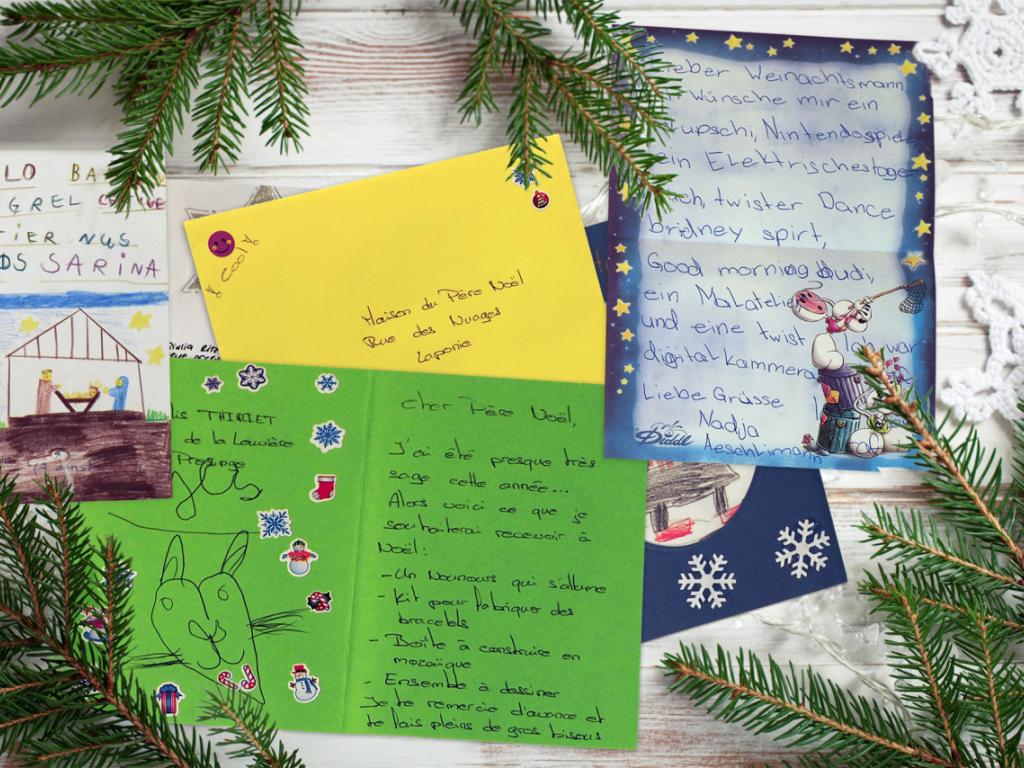 LO BA
GREL
TIER NUS
DS SARINA
COOL
Maison du Père Noël
Rue des Nuages
Laponie
THIRIET
de la Louvière
Presinge
cher Père Noël,
J'ai été presque très
sage cette année...
Alors voici ce que je
souhaiterai recevoir à
Noël:
- Un Nounours qui s'allume
- Kit pour fabriquer des
bracelets
- Boîte à construire en
mozaïque
- Ensemble à dessiner
Je te remercie d'avance et
te fais pleins de gros bisous
ieber Weinachtsmann
Wünsche mir ein
upschi, Nintendospiele
in Elektrischestage
ch, twister Dance
bridney spirt,
Good morning
ein Malatelie
und eine twist Ich war
digital kammera
Liebe Grüsse
Nadja
Aeschlimann
Diddl